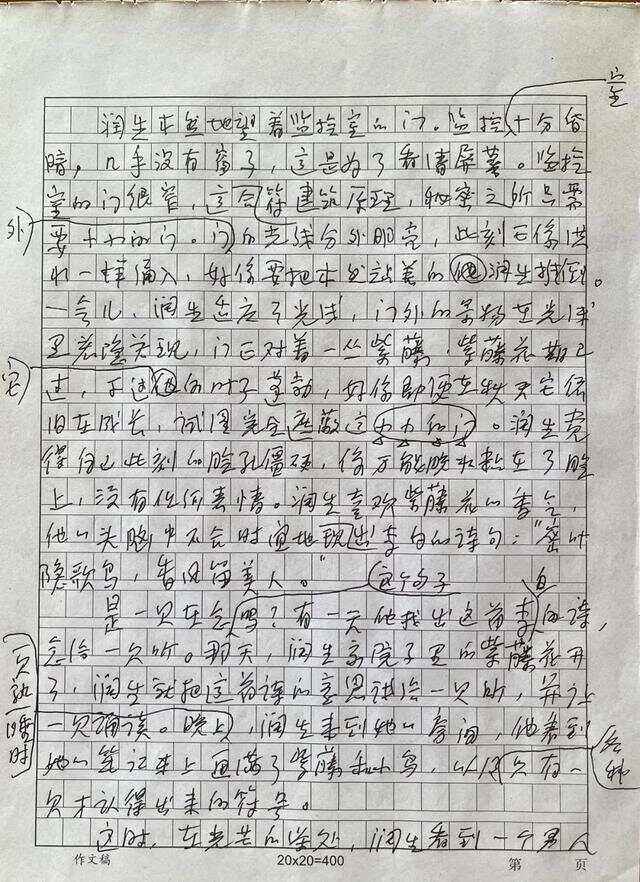 室
润生木然地望着监控室的门。监控十分昏
暗，几乎没有窗子，这是为了看清屏幕。监控
室的门很窄，这符建筑原理，秘密之所只需
外
要小小的门。门的光线分外明亮，此刻它像洪
水一样涌入，好像要把木然站着的他润生推倒。
一会儿，润生适应了光线，门外的景物在光线
里若隐若现，门正对着一丛紫藤。紫藤花期已
它
过，不过他的叶子蓬勃，好像即便在秋天它依
旧在成长，试图完全遮蔽这小小的门。润生觉
得自己此刻的脸孔僵硬，像万能胶水粘在了脸
上，没有任何表情。润生喜欢紫藤花的香气，
他的头脑中不合时宜地现出李白的诗句：“密叶
隐歌鸟，香风留美人。”
这个句子
白
是一只在念吗？有一天他找出这首李的诗，
念给一只听。那天，润生家院子里的紫藤花开
了，润生就把这首诗的意思讲给一只听，并让
一只诵读。晚上，润生来到她的房间，他看到
一只
睡时
她的笔记本上画满了紫藤和小鸟，以及只有一
各种
只才认得出来的符号。
这时，在光芒的深处，润生看到一个男人
作文稿
20×20=400
第 页